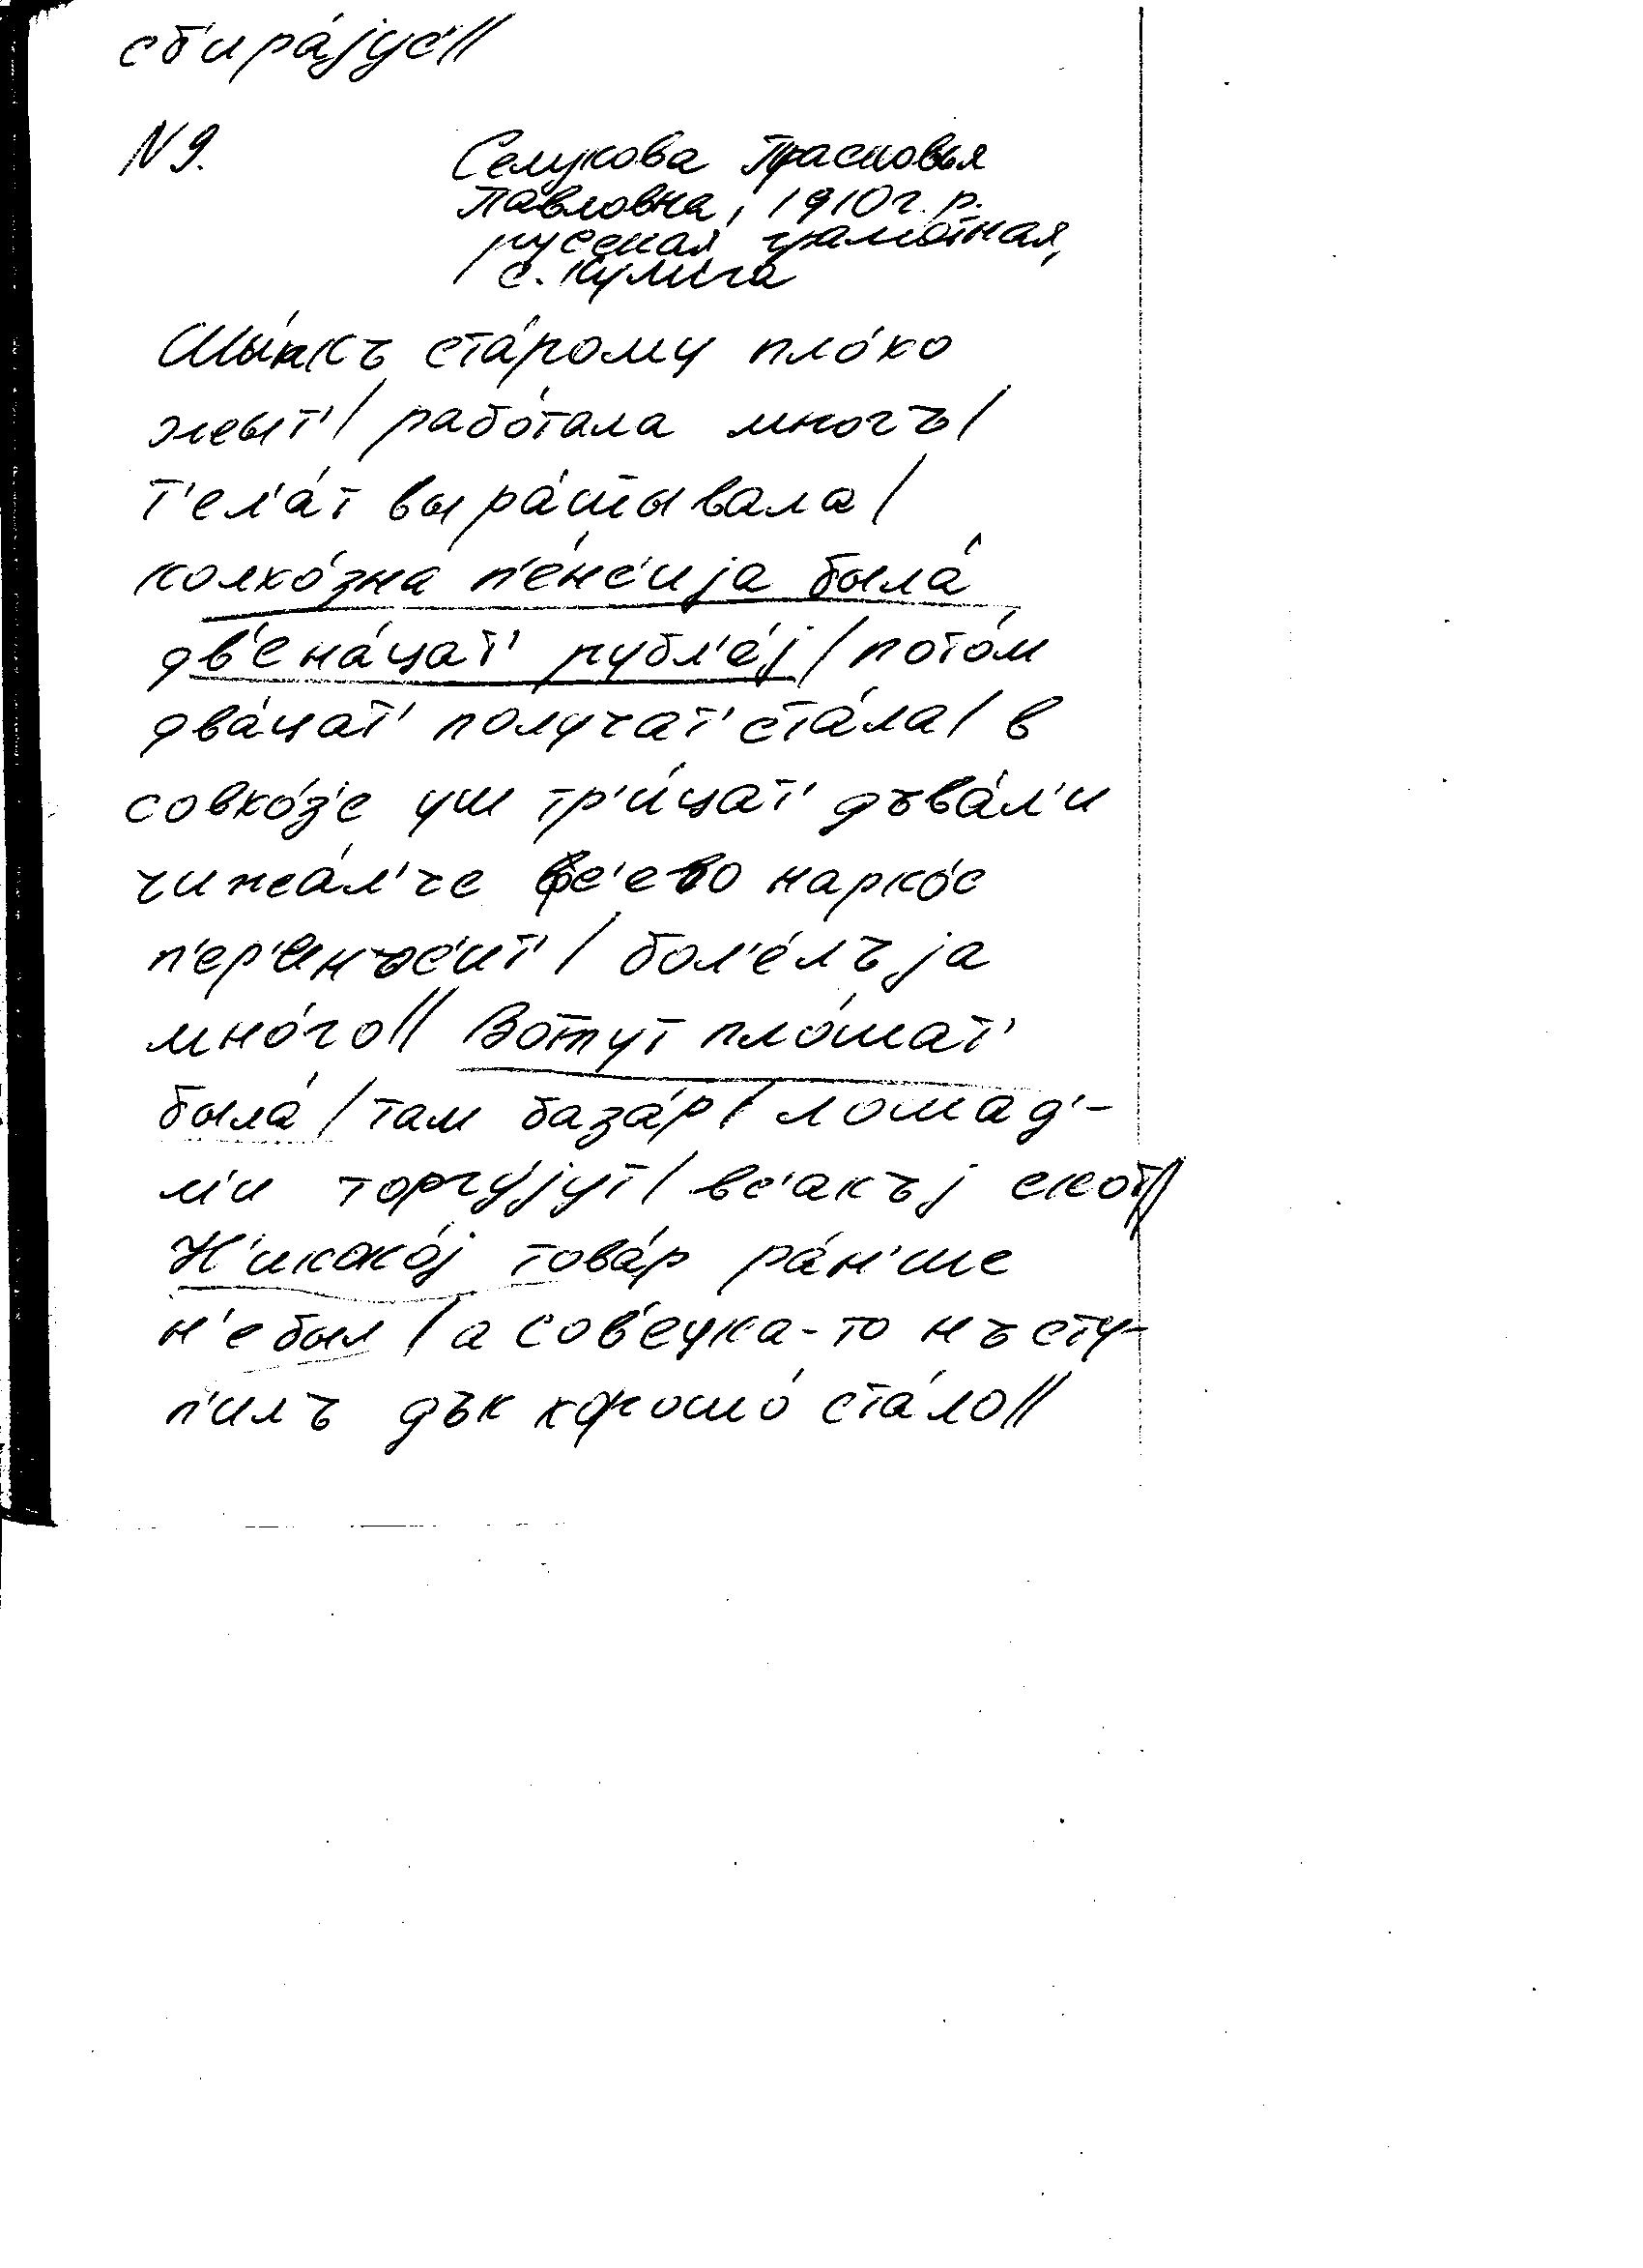 сб'ира́јус'//
N 9. Селукова Прасковья
Павловна, 1910 г. р.
русская грамотная,
с. Кулига
ста́рому пло́хо
жыт'/ рабо́тала многъ/
т'ел'а́т выра́шывала/
колхо́зна п'е́нс'ија была́
дв'ена́цат' рубл'е́ј/ пото́м
два́цат' получат' ста́ла/ в
совхо́з'е уш тр'и́цат' дъва́л'и
чижа́л'че вс'ево нарко́с
п'ер'инъс'ит'/ бол'е́лъ ја
мно́го// Вотту́т пло́шат'
была́/ там база́р/ лошад'-
м'и торгу́јут/ вс'акъј скот//
Н'икако́ј това́р ра́н'ше
н'е был/ а сов'ецка-то нъсту-
п'илъ дък хорошо́ ста́ло//